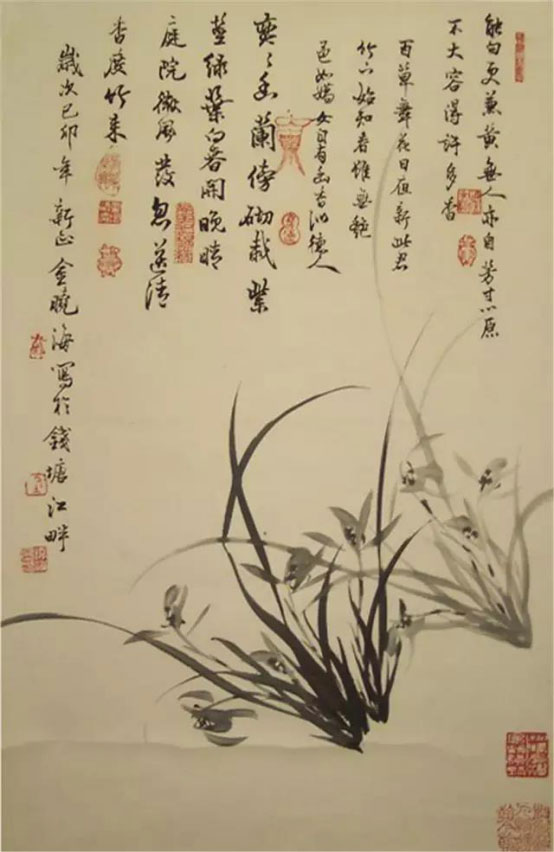 能白更兼黄無人亦自芳寸心原
不大容得許多香
百草舞花日夜新此君
竹下始知春雖無艷
色如嬌女自有幽香似德人
奕々幽蘭傍砌栽紫
莖綠葉向春開晚晴
庭院微風發忽送清
香度竹來
歲次己卯年新正金曉海寫於錢塘江畔